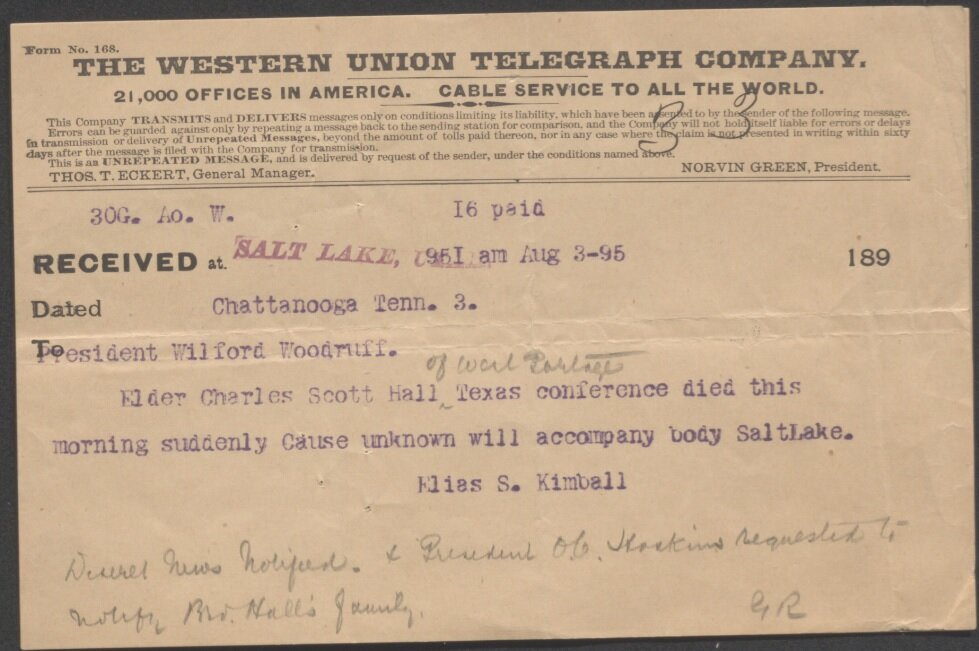 Form No. 168.
THE WESTERN UNION TELEGRAPH COMPANY.
21,000 OFFICES IN AMERICA. CABLE SERVICE TO ALL THE WORLD.
This Company TRANSMITS and DELIVERS messages only on conditions limiting its liability, which have been assented to by the sender of the following message.
Errors can be guarded against only by repeating a message back to the sending station for comparison, and the Company will not hold itself liable for errors or delays
in transmission or delivery of Unrepeated Messages, beyond the amount of tolls paid thereon, nor in any case where the claim is not presented in writing within sixty
days after the message is filed with the Company for transmission.
This is an UNREPEATED MESSAGE, and is delivered by request of the sender, under the conditions named above.
THOS. T. ECKERT, General Manager. NORVIN GREEN, President.
30G. Ao. W. I6 paid
RECEIVED at SALT LAKE, 95I am Aug 3-95 189
Dated Chattanooga Tenn. 3.
To President Wilford Woodruff.
of West Portage
Elder Charles Scott Hall ‸ Texas conference died this
morning suddenly Cause unknown will accompany body SaltLake.
Elias S. Kimball
Deseret News Notified. & President O.C. Hoskins requested to
notify Bro. Hall's family.
GR